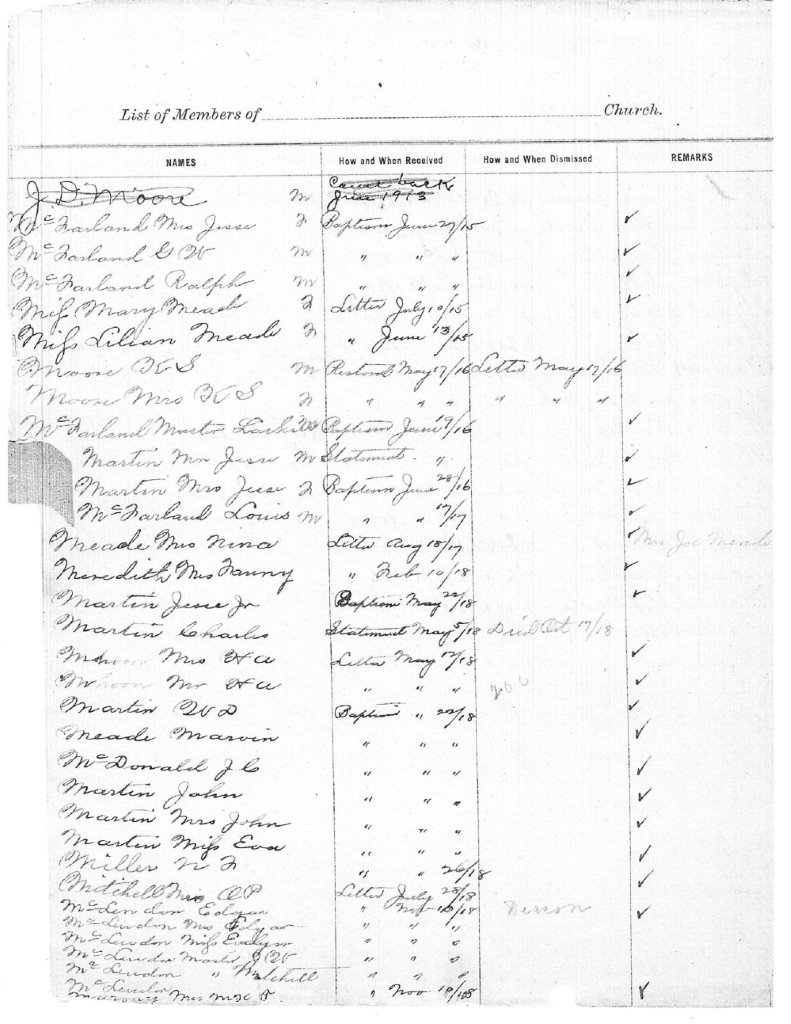 List of Members of Church.
NAMES How and When Received How and When Dismissed REMARKS
J. D. Moore M Came back June 1913
McFarland Mrs Jesse F Baptism June 27/15 ✓
McFarland G W M " " " ✓
McFarland Ralph M " " " ✓
Miss Mary Meade F Letter July 10/15 ✓
Miss Lilian Meade F " June 13/15 ✓
Moore K S M Restored May 17/16 Letter May 17/16
Moore Mrs K S F " " " " " "
McFarland Master Baptism June 19/16 ✓
Martin Mr Jesse M Statement " ✓
Martin Mrs Jesse F Baptism June 28/16 ✓
McFarland Louis M " " 17/17 ✓
Meade Mrs Nina Letter Aug 18/17 ✓ Mrs Joe Meade
Meredith Mrs Fanny " Feb 10/18 ✓
Martin Jesse Jr Baptism May 22/18 ✓
Martin Charles Statement May 5/18 Died Oct 17/18
Mrs H A Letter May 12/18 ✓
Mr H A " " " ✓
Martin W D Baptism " 22/18 ✓
Meade Marvin " " " ✓
McDonald J C " " " ✓
Martin John " " " ✓
Martin Mrs John " " " ✓
Martin Miss Eva " " " ✓
Miller " " 26/18
Mitchell Mrs A P Letter July 28/18 ✓
McLendon Edgar " Nov 18/18 Deacon ✓
McLendon Mrs Edgar " " "
McLendon Miss Evelyn " " "
McLendon Master J W " " "
McLendon " Mitchell " " "
McLendon
Mrs " Nov ✓